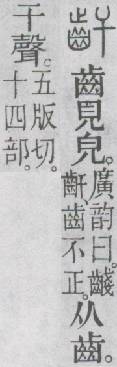 𪗙齒見皃。廣韵曰。𪘪𪗙齒不正。从齒。
干聲。五版切。十四部。